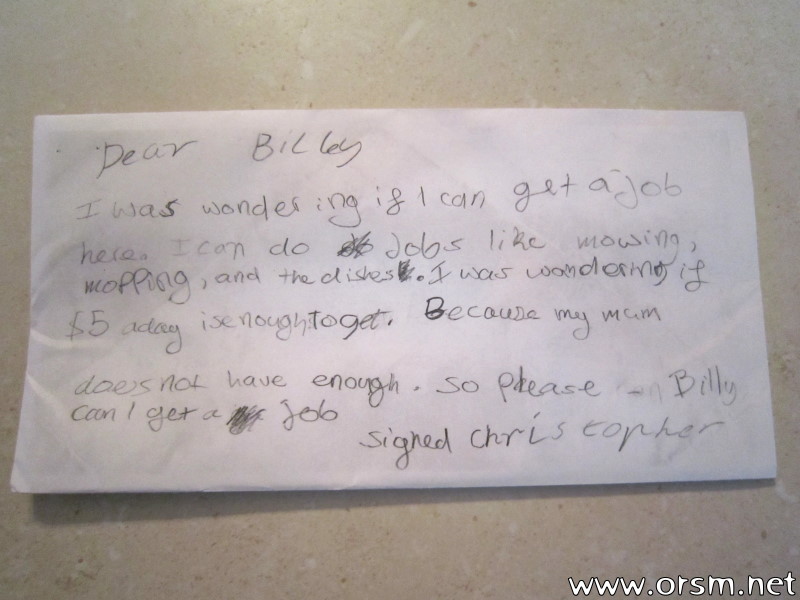 Dear Billy
I was wondering if I can get a job
here. I can do Jobs like mowing,
mopping, and the dishes. I was wondering if
$5 aday isenough to get. Because my mum
does not have enough. so please Billy
can I get a job
signed christopher
www.orsm.net